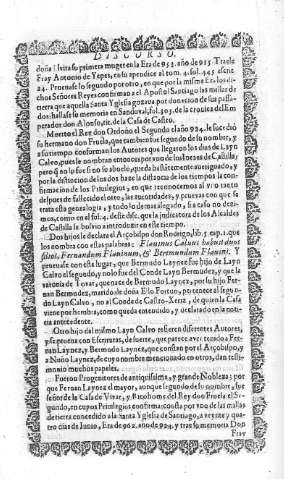 DISCURSO.
doña Elvira su primera muger en la Era de 953. año de 915. Traele
Fray Antonio de Yepes, en su apendice al tom. 4. fol. 445 escrit.
24. Pruevase lo segundo por otro, en que por la misma Era los di-
chos Señores Reyes confirman al Apostol Santiago las millas de
tierra que aquella Santa Yglesia gozava por donacion de sus passa-
dos: hallase su memoria en Sandoval, fol. en la Coronica del Em-
perador don Alonso, tit. de la Casa de Castro.
Muerto el Rey don Ordoño el Segundo el año 924. le sucedió
su hermano don Fruela, que tambien fue segundo de su nombre, y
a su tiempo conforman los Autores que llegaron los dos de Layn
Calvo, que le nombran entonces por vno de los Iuezes de Castilla,
pero que no lo fue sino su abuelo, queda bastantemente averiguado, y
por la distincion de los dos haze la distancia de los tiempos la con-
firmacion de los Privilegios, en que reconocemos al
despues de fallecido el otro, las escrituras, y pruevas con que se
trata esta genealogia, y todo lo demas alegado, sin caso no deci-
mos, como en el fol. 4. deste disc. que la judicatura de los Alcaldes
de Castilla se bolvio a introducir en este tiempo.
Dos hijos le declara el Arçobispo don Rodrigo, lib. 5. cap. 1. que
los nombra con estas palabras: Flavinus Calvus habuit duos
filios, Fernandum Flavinum, & Bermundum Flavini. Y
generase con esta lugar, que Bermudo Laynez fue hijo de Layn
Calvo el segundo, y nolo fue del Conde Layn Bermudez, y que la
varonia de Tovar, que nace de Bermudo Laynez, por su hijo Fer-
nan Bermudez, marido de doña Ello Fortun, pertenece al segun-
do Layn Calvo, no al Conde de Castro-Xeriz, de quien la Casa
viene por hembra, como queda entendido, y declarado en la no-
ticia antecedente.
Otro hijo del mismo Layn Calvo refieren diferentes Autores,
y se prueva con Escrituras, de suerte, que parece aver tenido a Fer-
nan Laynez, y Bermudo Laynez, que constan por el Arçobispo, y
a Nuño Laynez, de cuyo nombre mencionado en otro, dan testimo-
nio muchos papeles.
Fueron Progenitores de antiquissima, y grande Nobleza; por
que Fernan Laynez el mayor, aunque segundo deste nombre, fue
señor de la Casa de Vivar, y Ricohome del Rey don Fruela el Se-
gundo, en cuyos Privilegios confirma; consta por vno de las millas
de tierra concedido a la Santa Yglesia de Santiago, a veynte y qua-
tro dias de Iunio, Era de 962. año de 924. y tras su memoria Don
Fray